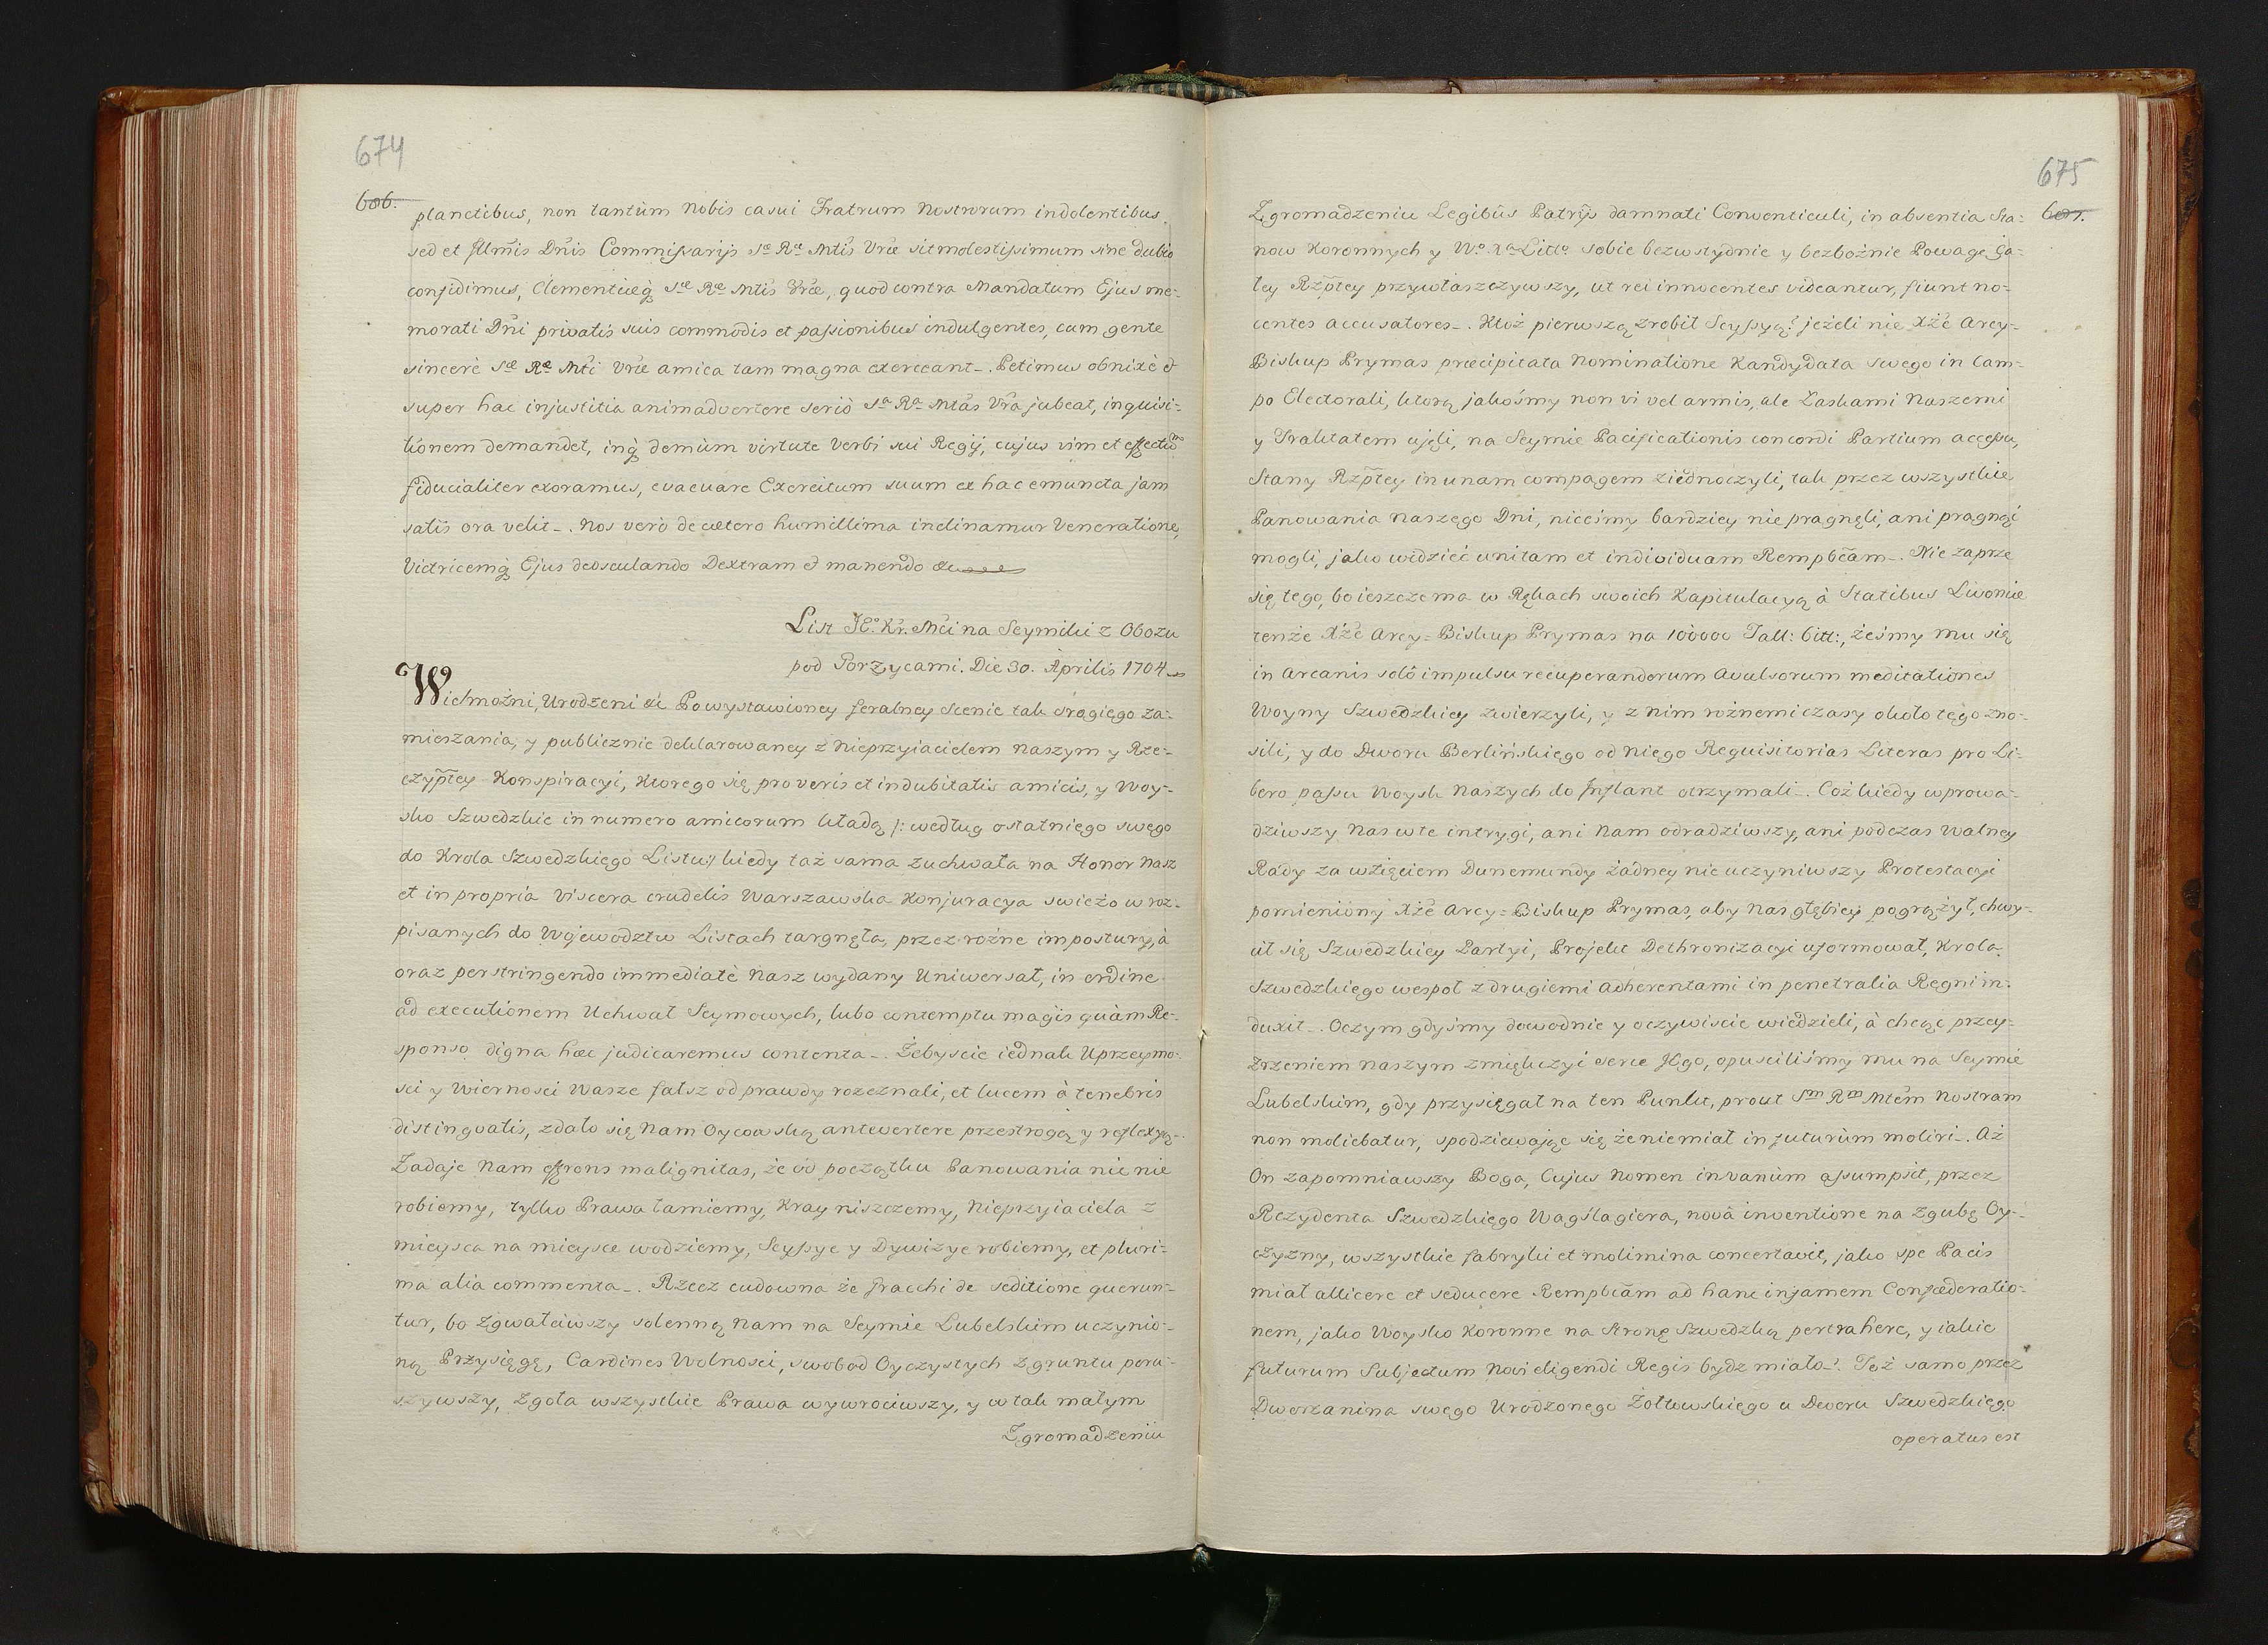 674
606.
planctibus, non tantùm Nobis casui Fratrum Nostrorum indolentibus,
sed et Illmis Dnis Commissarijs Sæ Ræ Mtis Vræ sit molestissimum sine dubio
confidimus, Clementiæq; Sæ Ræ Mtis Vræ, quod contra Mandatum Ejus me-
morati Dni privatis suis commodis et passionibus indulgentes, cum gente
sincerè Sæ Ræ Mti Vræ amica tam magna exerceant. Petimus obnixè &
super hac injustitia animadvertere seriò Sa Ra Mtas Vra jubeat, inquisi-
tionem demandet, inq; demùm virtute Verbi sui Regij, cujus vim et effectũ
fiducialiter exoramus, evacuare Exercitum suum ex hac emuncta jam
satis ora velit. Nos verò de cætero humillima inclinamur Veneratione,
Victricemq; Ejus deosculando Dextram & manendo &
List JKo. Kr. Mci na Seymiki z Obozu
pod Porzycami. Die 30. Aprilis 1704
Wielmożni, Urodzeni &c Po wystawioney feralney scenie tak srogiego za-
mieszania, y publicznie deklarowaney z Nieprzyiacielem naszym y Rze-
czyptey Konspiracyi, Ktorego się pro veris et indubitatis amicis, y Woy-
sko Szwedzkie in numero amicorum kładą /: według ostatniego swego
do Krola Szwedzkiego Listu:/ kiedy taż sama zuchwała na Honor Nasz
et in propria viscera crudelis Warszawska Konjuracya swieżo w roz-
pisanych do Wojewodztw Listach targnęła, przez rożne impostury, à
oraz perstringendo immediatè Nasz wydany Uniwersał, in ordine
ad executionem Uchwał Seymowych, lubo contemptu magis quàm Re-
sponso digna hæc judicaremus contenta. Żebyscie iednak Uprzeymo-
sci y Wiernosci Wasze fałsz od prawdy rozeznali, et lucem à tenebris
distingvatis, zdało się Nam Oycowską antevertere przestrogą y reflexyą.
Zadaje Nam effrons malignitas, że od początku Panowania nic nie
robiemy, tylko Prawa łamiemy, Kray niszczemy, Nieprzyiaciela z
mieysca na mieysce wodziemy, Scyssye y Dywizye robiemy, et pluri-
ma alia commenta. Rzecz cudowna że Gracchi de seditione querun-
tur, bo zgwałciwszy solenną Nam na Seymie Lubelskim uczynio-
ną Przysięgę, Cardines Wolnosci, swobod Oyczystych z gruntu poru-
szywszy, zgoła wszystkie Prawa wywrociwszy, y w tak małym
Zgromadzeniu
675
607.
Zgromadzeniu Legibus Patrijs damnati Conventiculi, in absentia Sta-
now Koronnych y Wo. Xa Litto. sobie bezwstydnie y bezbożnie Powagę ca-
łey Rzptey przywłaszczywszy, ut rei innocentes videantur, fiunt no-
centes accusatores. Ktoż pierwszą zrobił Scyssyą? jeżeli nie Xże Arcy-
Biskup Prymas præcipitata Nominatione Kandydata swego in Cam-
po Electorali, ktorą jakośmy non vi vel armis, ale Łaskami Naszemi
y Traktatem ujęli, na Seymie Pacificationis concordi Partium accessu,
Stany Rzptey in unam compagem ziednoczyli, tak przez wszystkie
Panowania naszego Dni, niceśmy bardziey nie pragnęli, ani pragnąć
mogli, jako widzieć unitam et individuam Rempbcam. Nie zaprze
się tego, bo ieszcze ma w Rękach swoich Kapitulacyą à Statibus Livoniæ
tenże Xże Arcy-Biskup Prymas na 100000 Tall: bitt:, żeśmy mu się
in Arcanis solo impulsu recuperandorum Avulsorum meditationes
Woyny Szwedzkiey zwierzyli, y z nim rożnemi czasy około tego zno-
sili, y do Dworu Berlińskiego od niego Requisitorias Literas pro Li-
bero passu Woysk Naszych do Inflant otrzymali. Coż kiedy wprowa-
dziwszy Nas w te intrygi, ani Nam odradziwszy, ani podczas Walney
Rady za wzięciem Dunemundy żadney nie uczyniwszy Protestacyi
pomieniony Xże Arcy-Biskup Prymas, aby Nas głębiey pogrążył, chwy-
cił się Szwedzkiey Partyi, Projekt Dethronizacyi uformował, Krola
Szwedzkiego wespoł z drugiemi Adherentami in penetralia Regni in-
duxit. O czym gdyśmy dowodnie y oczywiscie wiedzieli, à chcąc przey-
zrzeniem naszym zmiękczyć serce JKgo, opuscilismy mu na Seymie
Lubelskim, gdy przysięgał na ten Punkt, prout Sm Rm Mtem Nostram
non moliebatur, spodziewając się że niemiał in futurum moliri. Aż
On zapomniawszy Boga, Cujus Nomen in vanum assumpsit, przez
Rezydenta Szwedzkiego Wagslagiera, novâ inventione na zgubę Oy-
czyzny, wszystkie fabryki et molimina concertavit, jako spe Pacis
miał allicere et seducere Rempbcam ad hanc infamem Confæderatio-
nem, jako Woysko Koronne na stronę Szwedzką pertrahere, y iakie
futurum Subjectum Novi eligendi Regis bydz miało. Toż samo przez
Dworzanina swego Urodzonego Żołtowskiego u Dworu Szwedzkiego
operatus est